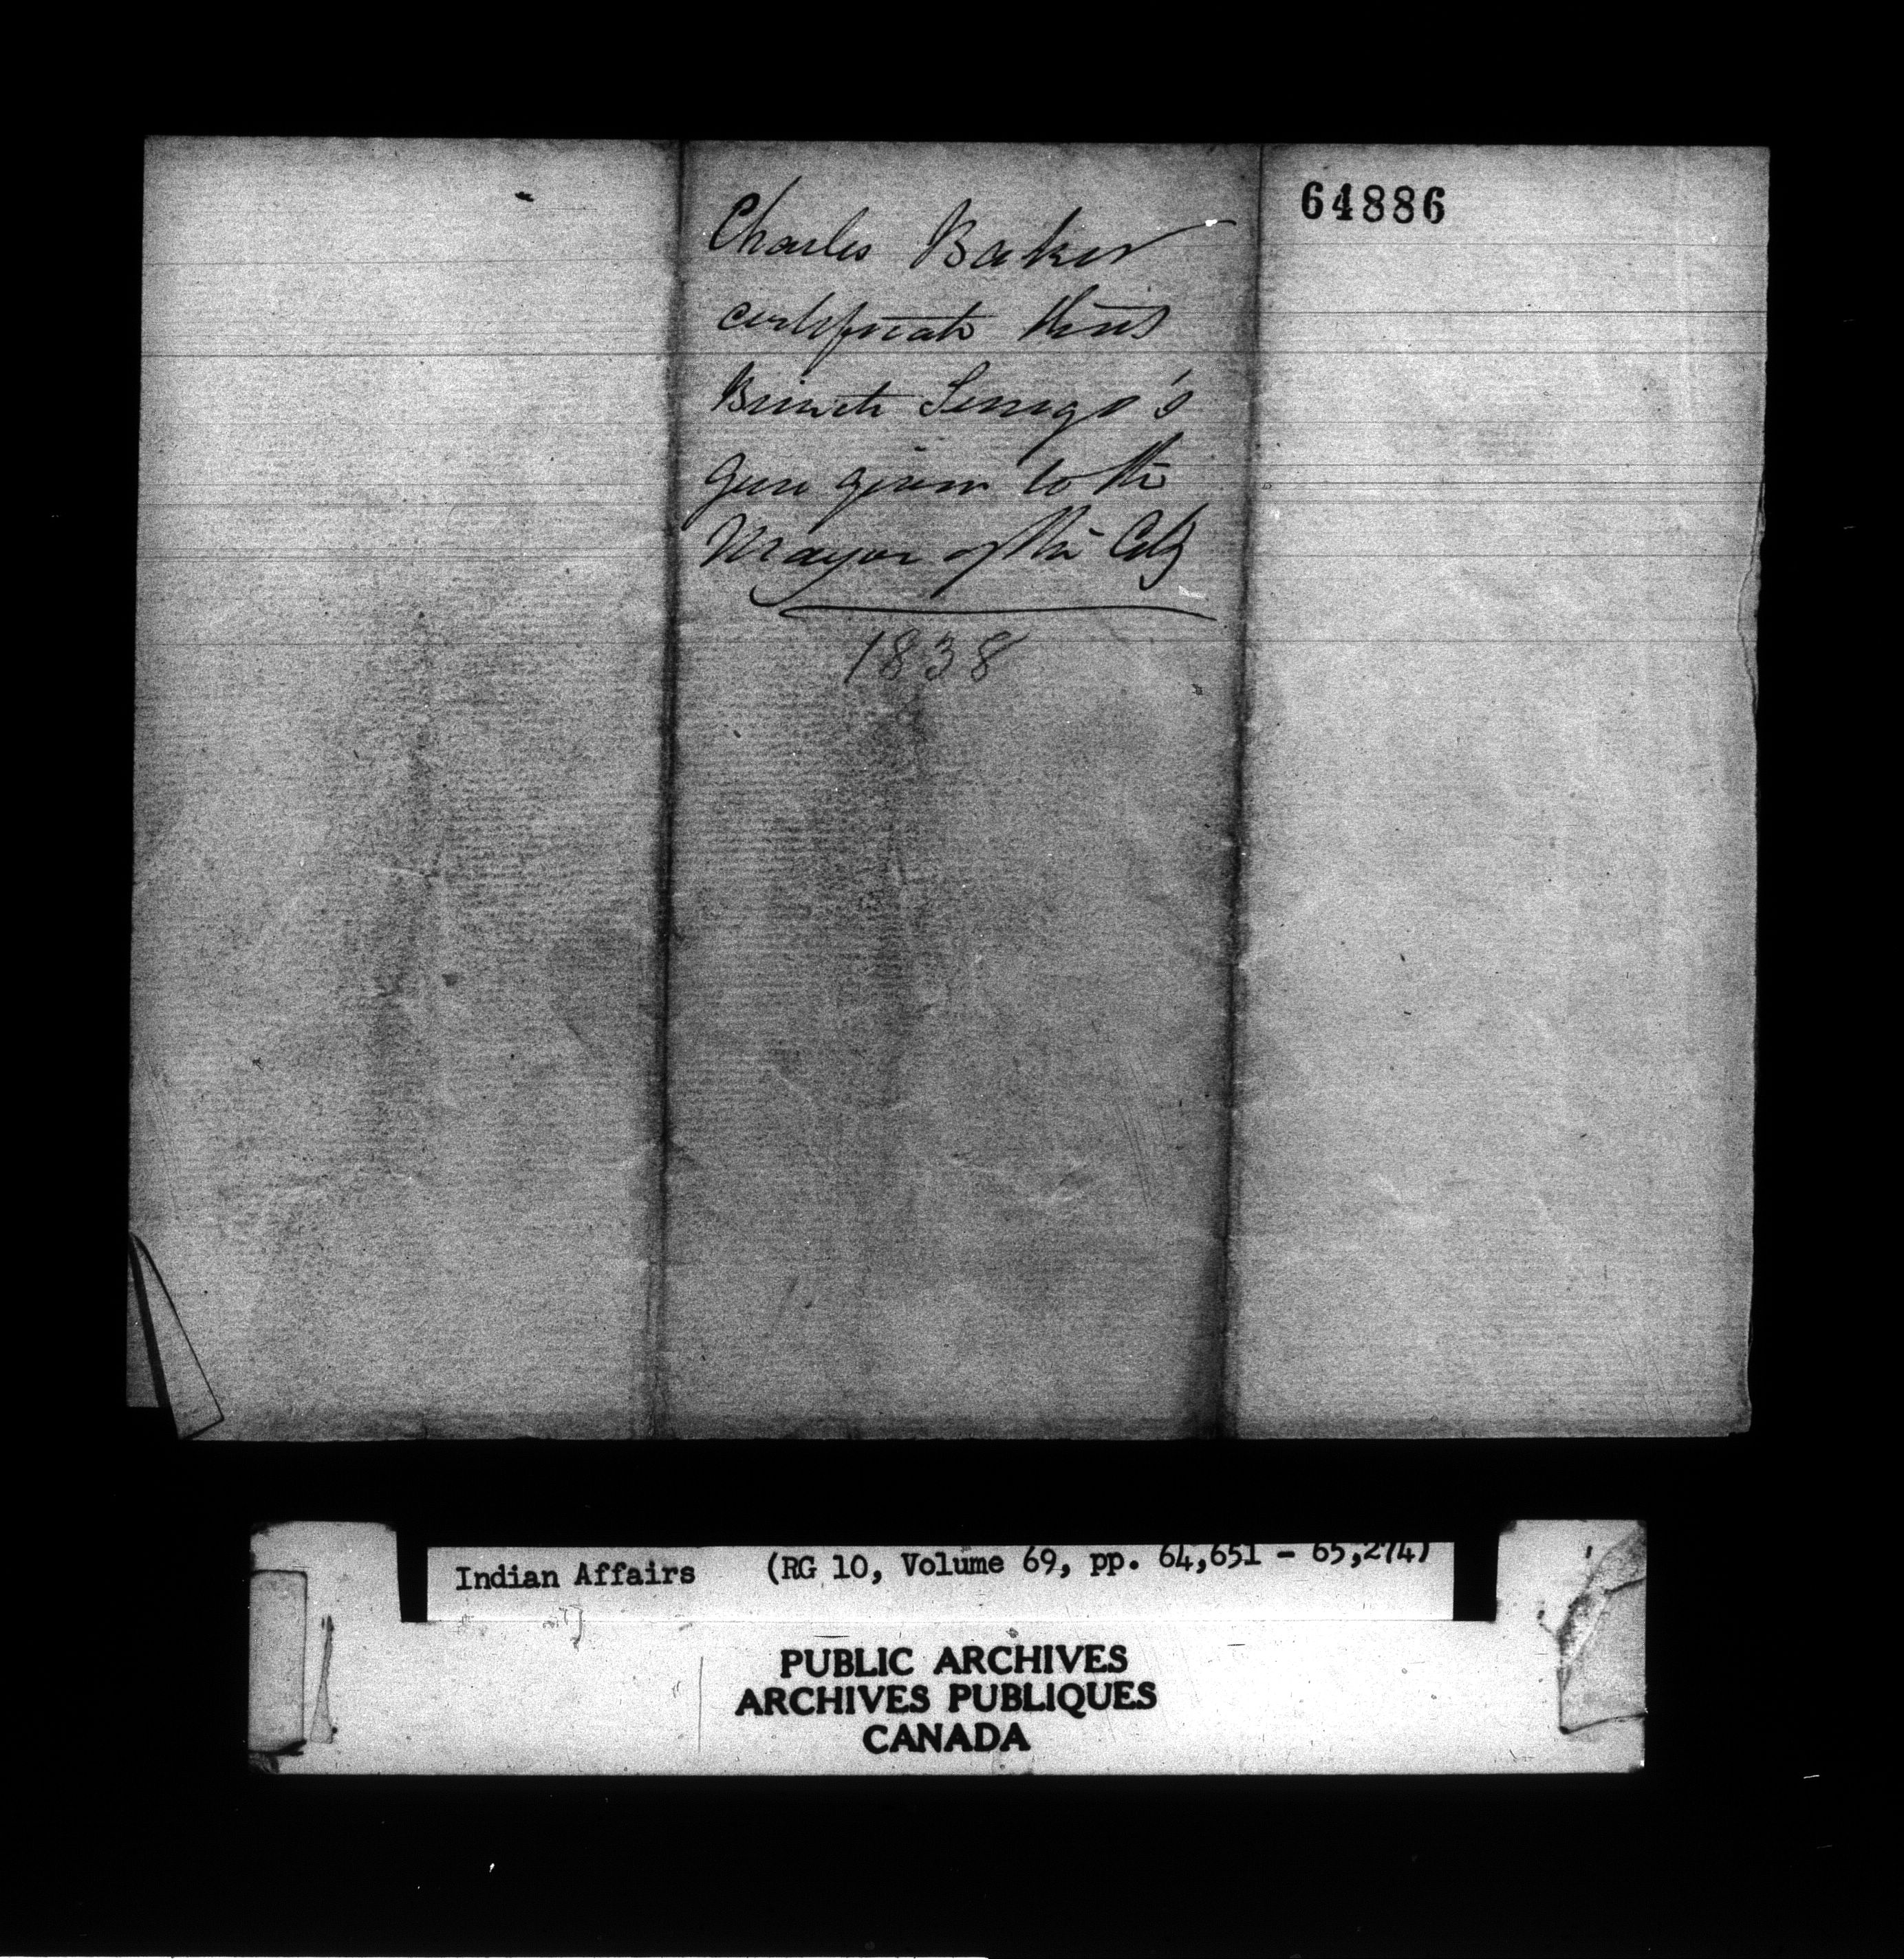 64886
Charles Baker
certificate that
gun given to the
Mayor of the City
1838
Indian Affairs (RG 10, Volume 69, pp. 64,651 - 65,274)
PUBLIC ARCHIVES
ARCHIVES PUBLIQUES
CANADA